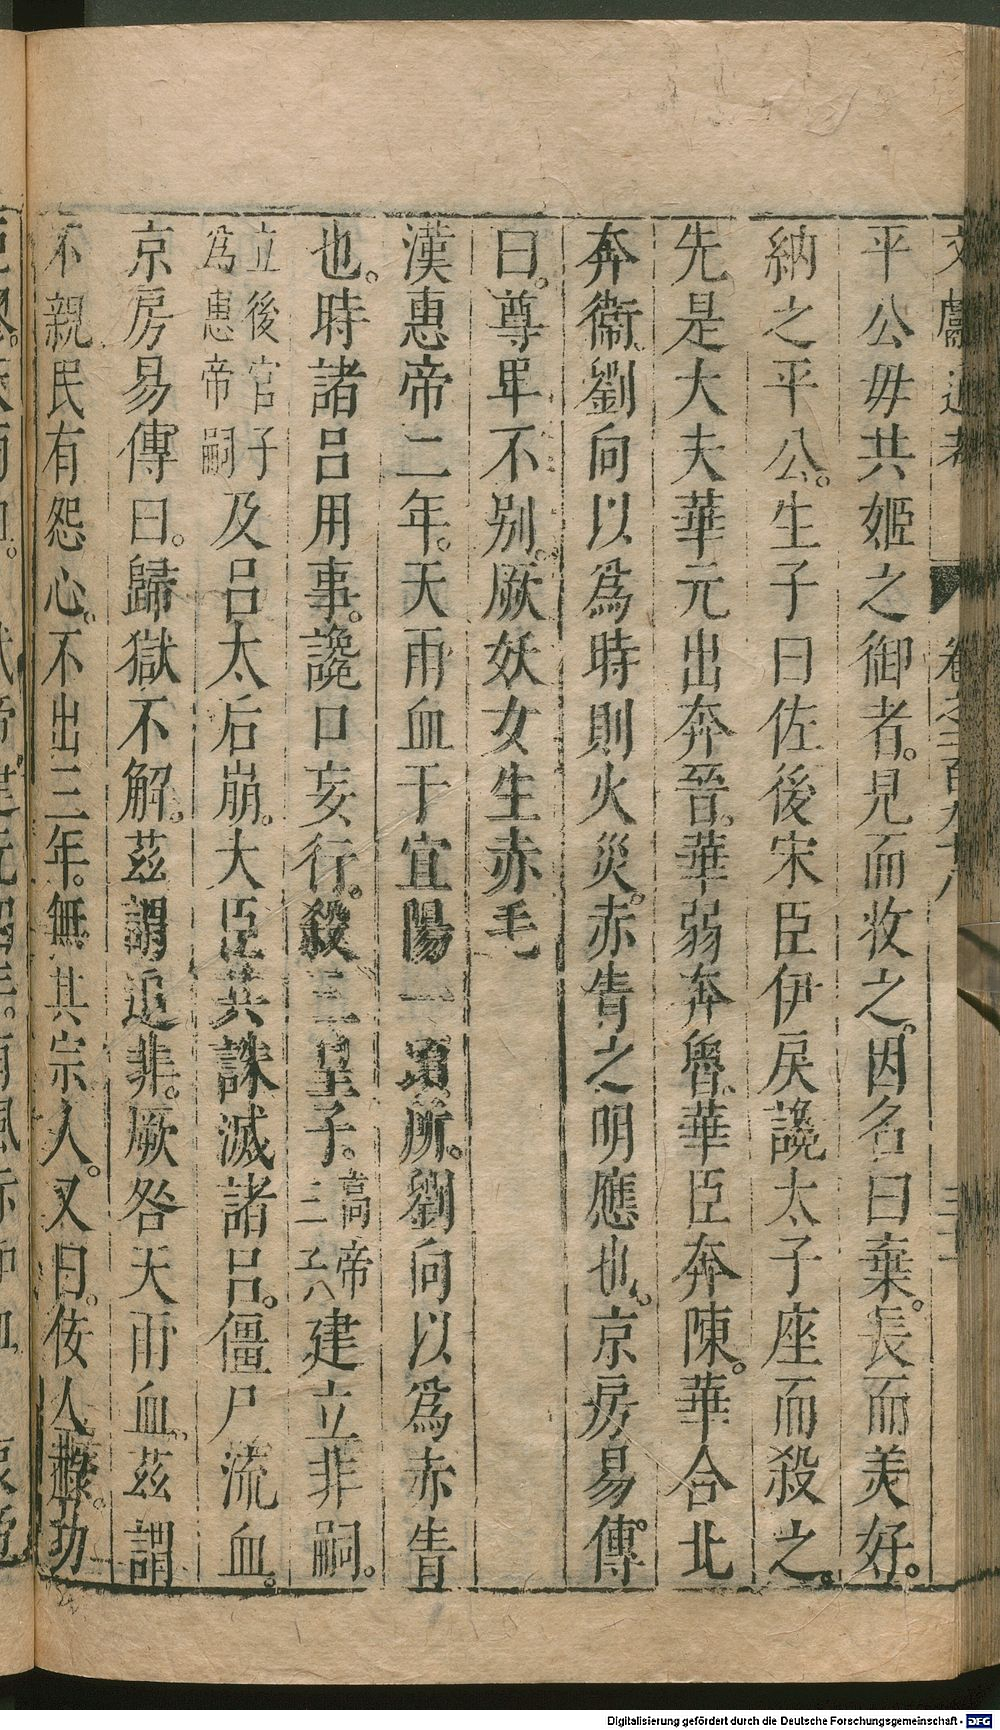 文獻通考 卷之二百九十八
平公毋共姬之御者。見而收之。因名曰棄。長而美好。
納之平公。生子曰佐後宋臣伊戾讒太子座而殺之。
先是大夫華元出奔晉。華弱奔魯。華臣奔陳。華合北
奔衞。劉向以爲時則火災。赤眚之明應也。京房易傳
曰。尊卑不别。厥妖女生赤毛
漢惠帝二年。天雨血于宜陽一頃所。劉向以爲赤眚
也。時諸呂用事。讒口妄行。殺三皇子。高帝三子八建立非嗣。
立後宮子爲惠帝嗣及呂太后崩。大臣共誅滅諸呂。僵尸流血。
京房易傳曰。歸獄不解。茲謂追非。厥咎天雨血。茲謂
不親民有怨心。不出三年。無其宗人。又曰。佞人祿。功
Digitalisierung gefördert durch die Deutsche Forschungsgemeinschaft - DFG